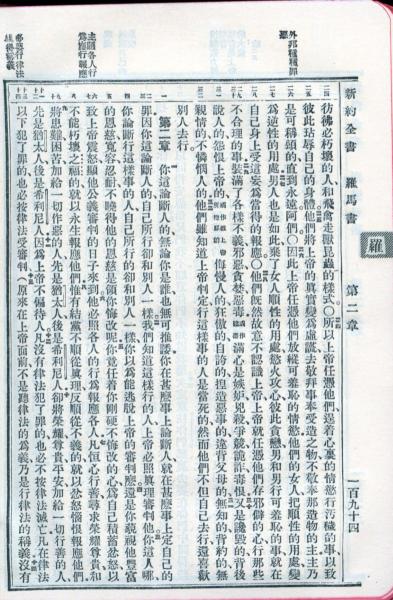 新約全書 羅馬書 第二章 一百九十四
羅
彷彿必朽壞的人和飛禽走獸昆蟲的樣式〇所以上帝任憑他們逞着心裏的情慾行污穢的事以致
彼此玷辱自己的身體他們將上帝的真實變為虛謊去敬拜事奉受造之物不敬奉那造物的主主乃
是可稱頌的直到永遠阿們〇因此上帝任憑他們放縱可羞恥的情慾他們的女人把順性的用處變
為逆性的用處男人也是如此棄了女人順性的用處慾火攻心彼此貪戀男和男行可羞恥的事就在
自己身上受這妄為當得的報應〇他們既然故意不認識上帝上帝就任憑他們存邪僻的心行那些
不合理的事裝滿了各樣不義邪惡貪婪惡毒滿心是嫉妒兇殺爭競詭詐毒恨又是讒毀的背後
說人的怨恨上帝的侮慢人的狂傲的自誇的捏造惡事的違背父母的無知的背約的無
親情的不憐憫人的他們雖知道上帝判定行這樣事的人是當死的然而他們不但自己去行還喜歡
別人去行
第二章 你這論斷人的無論你是誰也無可推諉你在甚麼事上論斷人就在甚麼事上定自己的
罪因你這論斷人的自己所行卻和別人一樣我們知道這樣行的人上帝必照真理審判他你這人哪
你論斷行這樣事的人自己所行的卻和別人一樣你以為能逃脫上帝的審判麼還是你藐視他豐富
的恩慈寬容忍耐不曉得他的恩慈是領你悔改呢你竟任着你剛硬不悔改的心為自己積蓄忿怒以
致上帝震怒顯他公義審判的日子來到他必照各人的行為報應各人凡恆心行善尋求榮耀尊貴和
不能朽壞之福的就以永生報應他們惟有結黨不順從真理反順從不義的就以忿怒惱恨報應他們
將患難困苦加給一切作惡的人先是猶太人後是希利尼人卻將榮耀尊貴平安加給一切行善的人
先是猶太人後是希利尼人因為上帝不偏待人凡沒有律法犯了罪的也必不按律法滅亡凡在律法
以下犯了罪的也必按律法受審判原來在上帝面前不是聽律法的為義乃是行律法的稱義沒有